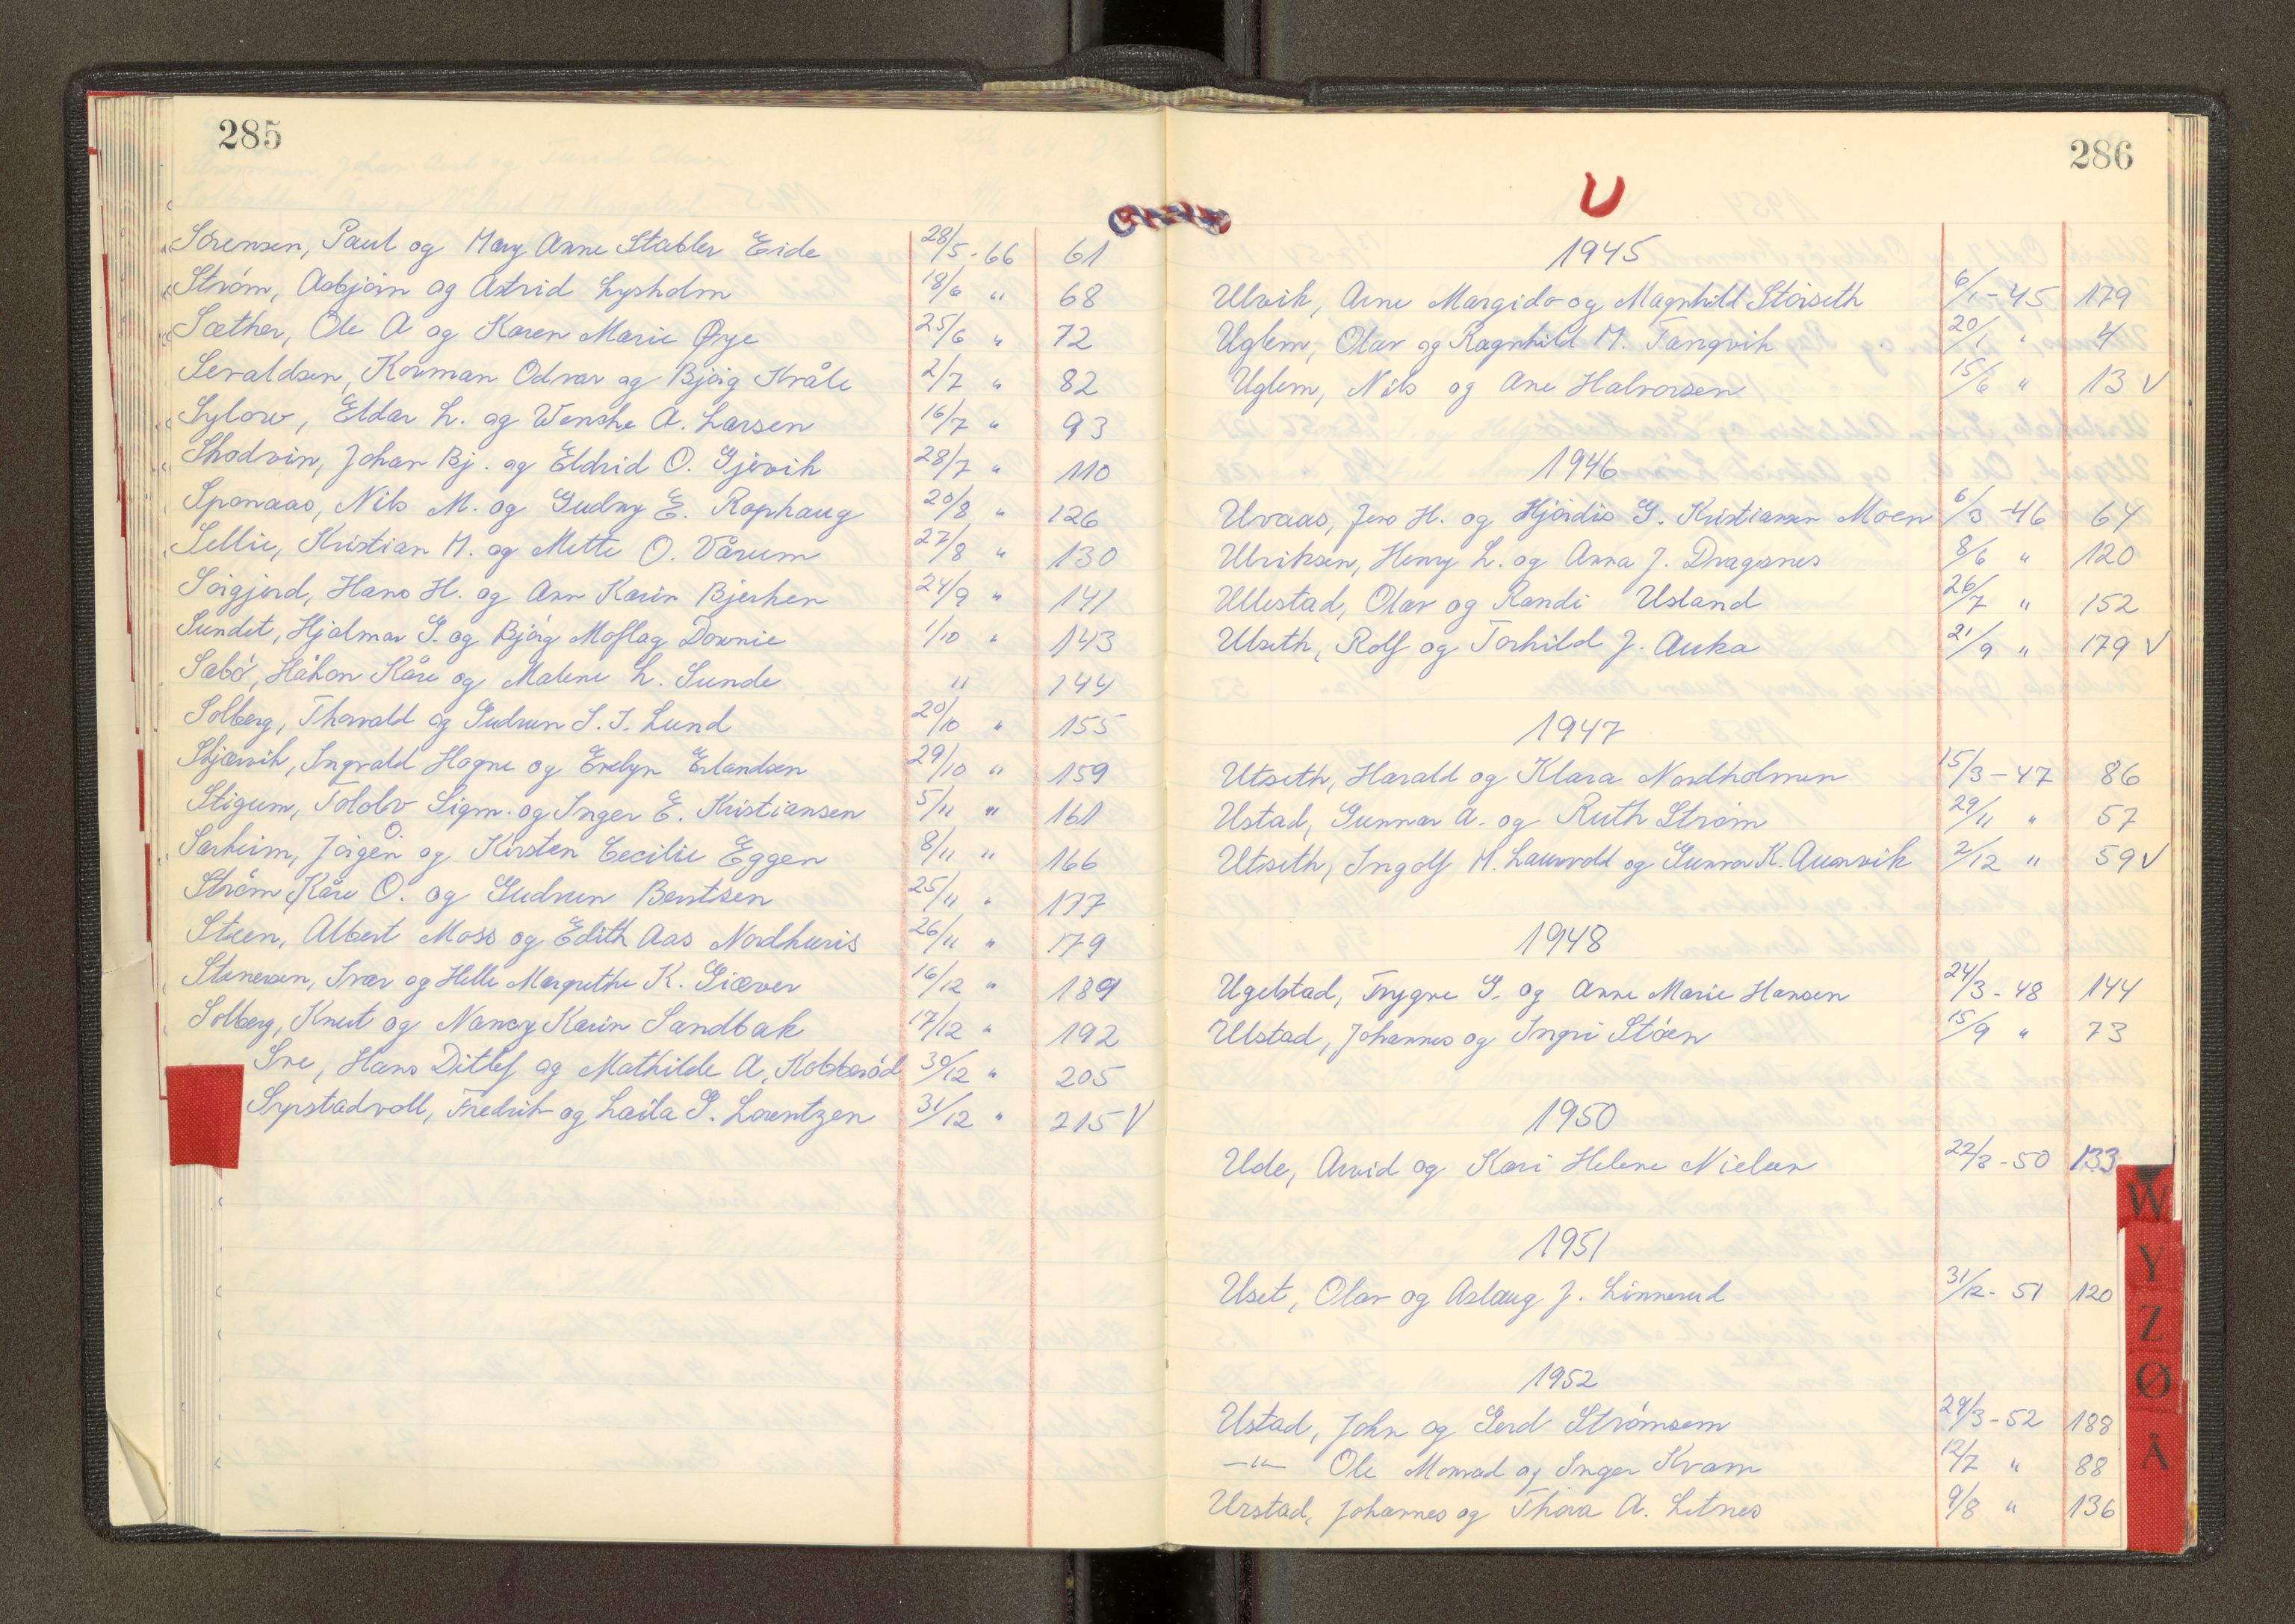 285
Sørensen, Paul og Mary Anne Stabler Eide 28/5-66 61
Strøm, Asbjørn og Astrid Lysholm 18/6 " 68
Sæther, Ole A og Karen Marie Øye 25/6 " 72
Sevaldsen, Korman Odvar og Bjørg Kråle 2/7 " 82
Sylow, Eldar L. og Wenche A. Larsen 16/7 " 93
Skodvin, Johan Bj. og Eldrid O. Gjevik 28/7 " 110
Sponaas, Nils M. og Gudny E. Rophaug 20/8 " 126
Sellie, Kristian M. og Mette O. Vårum 27/8 " 130
Sørgjerd, Hans H. og Ann Karin Bjerken 24/9 " 141
Sundet, Hjalmar G. og Bjørg Moflag Downie 1/10 " 143
Sæbø, Håkon Kåre og Malene L. Sunde " 144
Solberg, Thorvald og Gudrun S. I. Lund 20/10 " 155
Skjærvik, Ingvald Hogne og Evelyn Erlandsen 29/10 " 159
Stigum, Tololv Sigm. og Inger E. Kristiansen 5/11 " 161
Sørheim, Jørgen Ö. og Kirsten Cecilie Eggen 8/11 " 166
Strøm Kåre O. og Gudrun Berntsen 25/11 " 177
Steen, Albert Moss og Edith Aas Nordhuris 26/11 " 179
Stenersen, Ivar og Helle Margrethe K. Giæver 16/12 " 189
Solberg, Knut og Nancy Karin Sandbak 17/12 " 192
Sve, Hans Ditlef og Mathilde A. Kobberød 30/12 " 205
Sypstadvoll, Fredrik og Laila G. Lorentzen 31/12 " 215 V
286
U
1945
Ulvik, Arne Margido og Magnhild Størseth 6/1-45 179
Uglem, Olav og Ragnhild M. Tangvik 20/1 " 4
Uglem, Nils og Ane Halvorsen 15/6 " 13 V
1946
Uvaas, Jens H. og Hjørdis G. Kristiansen Moen 6/3-46 64
Ulriksen, Henry L. og Anna J. Dragsnes 8/6 " 120
Ullestad, Olav og Randi Usland 26/7 " 152
Ulseth, Rolf og Torhild J. Auka 21/9 " 179 V
1947
Utseth, Harald og Klara Nordholmen 15/3-47 86
Ustad, Gunnar A. og Ruth Strøm 29/11 " 57
Utseth, Ingolf M. Laurvold og Gunvor K. Aunvik 2/12 " 59 V
1948
Ugelstad, Trygve G. og Anne Marie Hansen 24/3-48 144
Ulstad, Johannes og Ingri Støen 15/9 " 73
1950
Ude, Arvid og Kari Helene Nielsen 22/3-50 133
1951
Uset, Olav og Aslaug J. Linnerud 31/12-51 120
1952
Ustad, John og Gerd Strømsem 29/3-52 188
—"— Ole Monrad og Inger Kvam 12/7 " 88
Urstad, Johannes og Thora A. Letnes 9/8 " 136
W
Y
Z
Ø